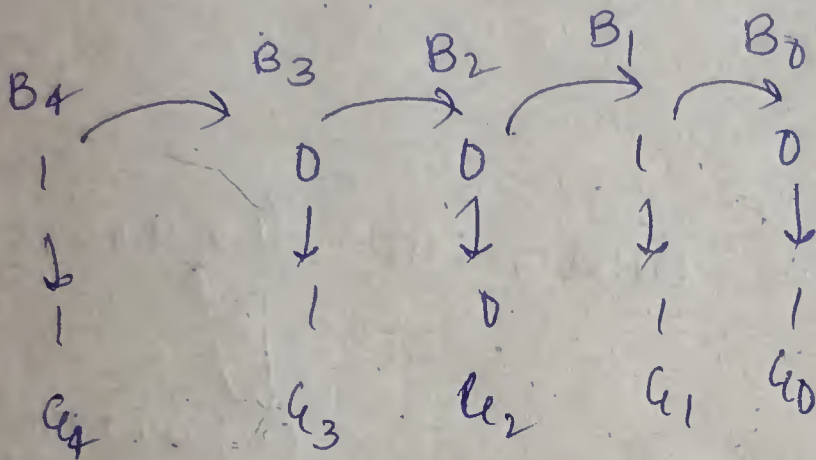 B4 B3 B2 B1 B0
1 0 0 1 0
1 1 0 1 1
G4 G3 G2 G1 G0